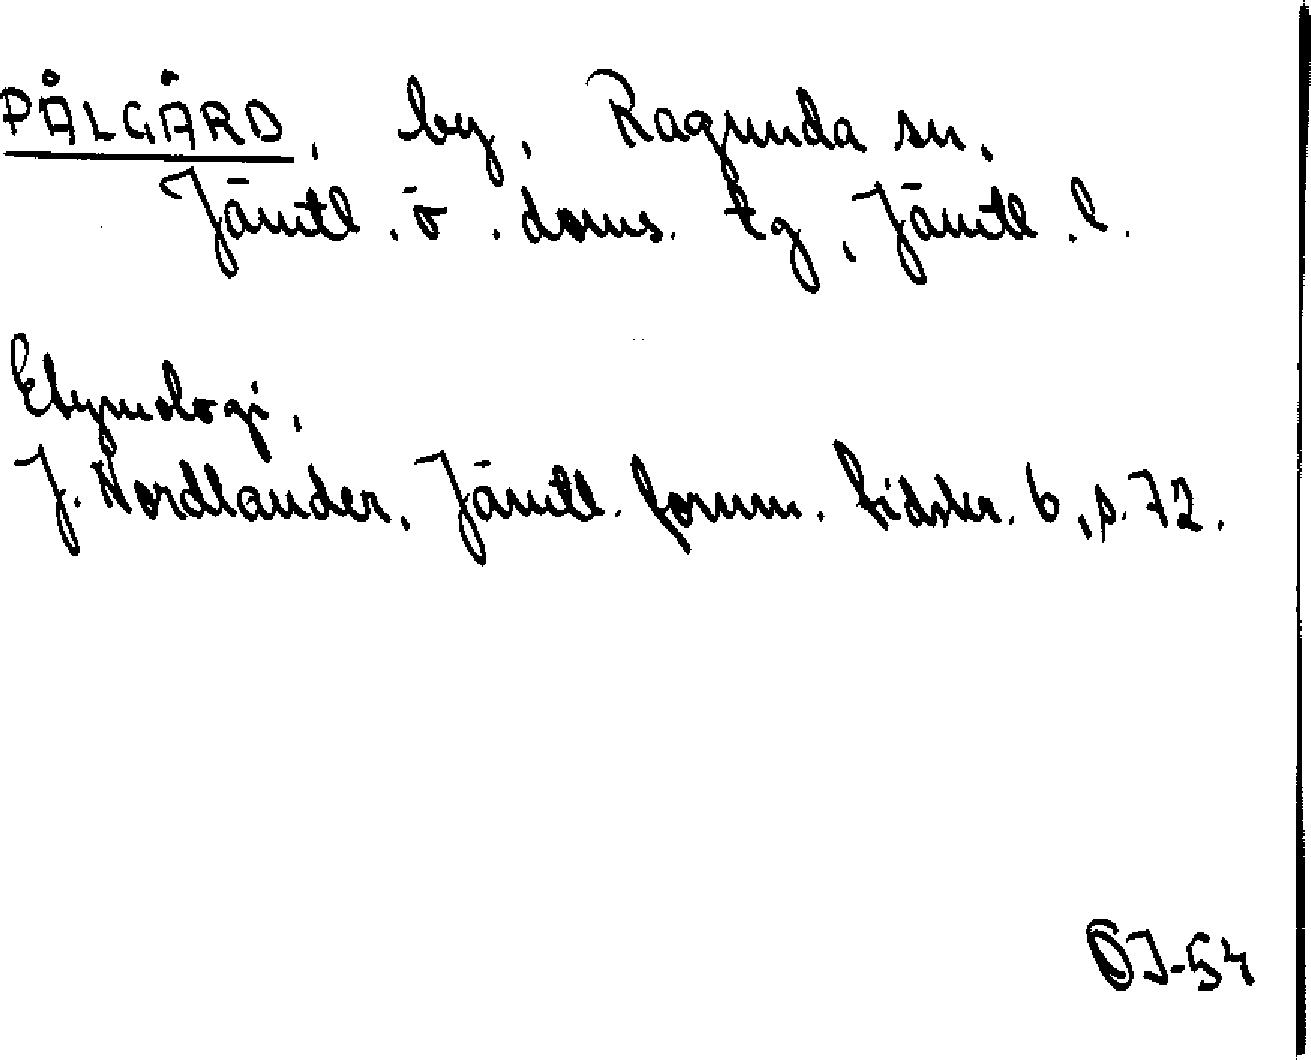 PÅLGÅRD, by, Ragunda sn,
Jämtl. ö. doms. tg, Jämtl. l.
Etymologi.
J. Nordlander, Jämtl. fornm. tidskr. 6, s. 72.
ÖJ-54